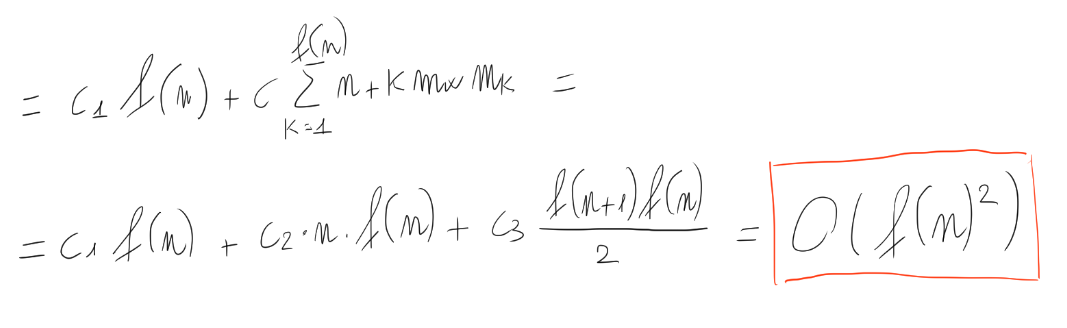 = c₁ f(n) + c ∑_{k=1}^{f(n)} n + k max mk =
= c₁ f(n) + c₂ · n · f(n) + c₃ \frac{f(n+1) f(n)}{2} = O(f(n)²)